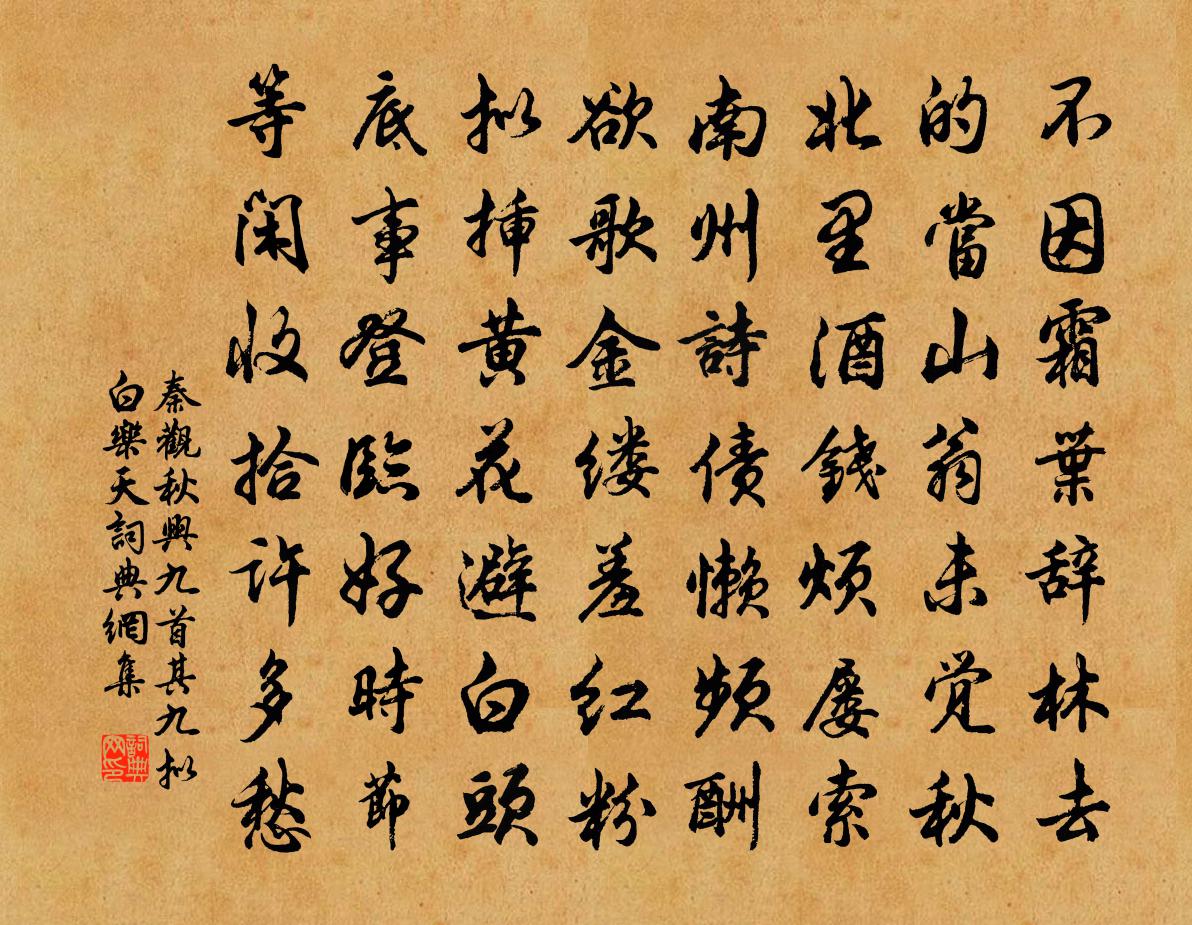 不因霜葉辞林去
的當山翁未覺秋
北里酒錢煩屢索
南州詩债懒頻酬
欲歌金缕羞红粉
拟插黄花避白頭
底事登臨好時節
等閑收拾許多愁
秦觀秋興九首其九拟
白樂天詞典網集
詞典网印